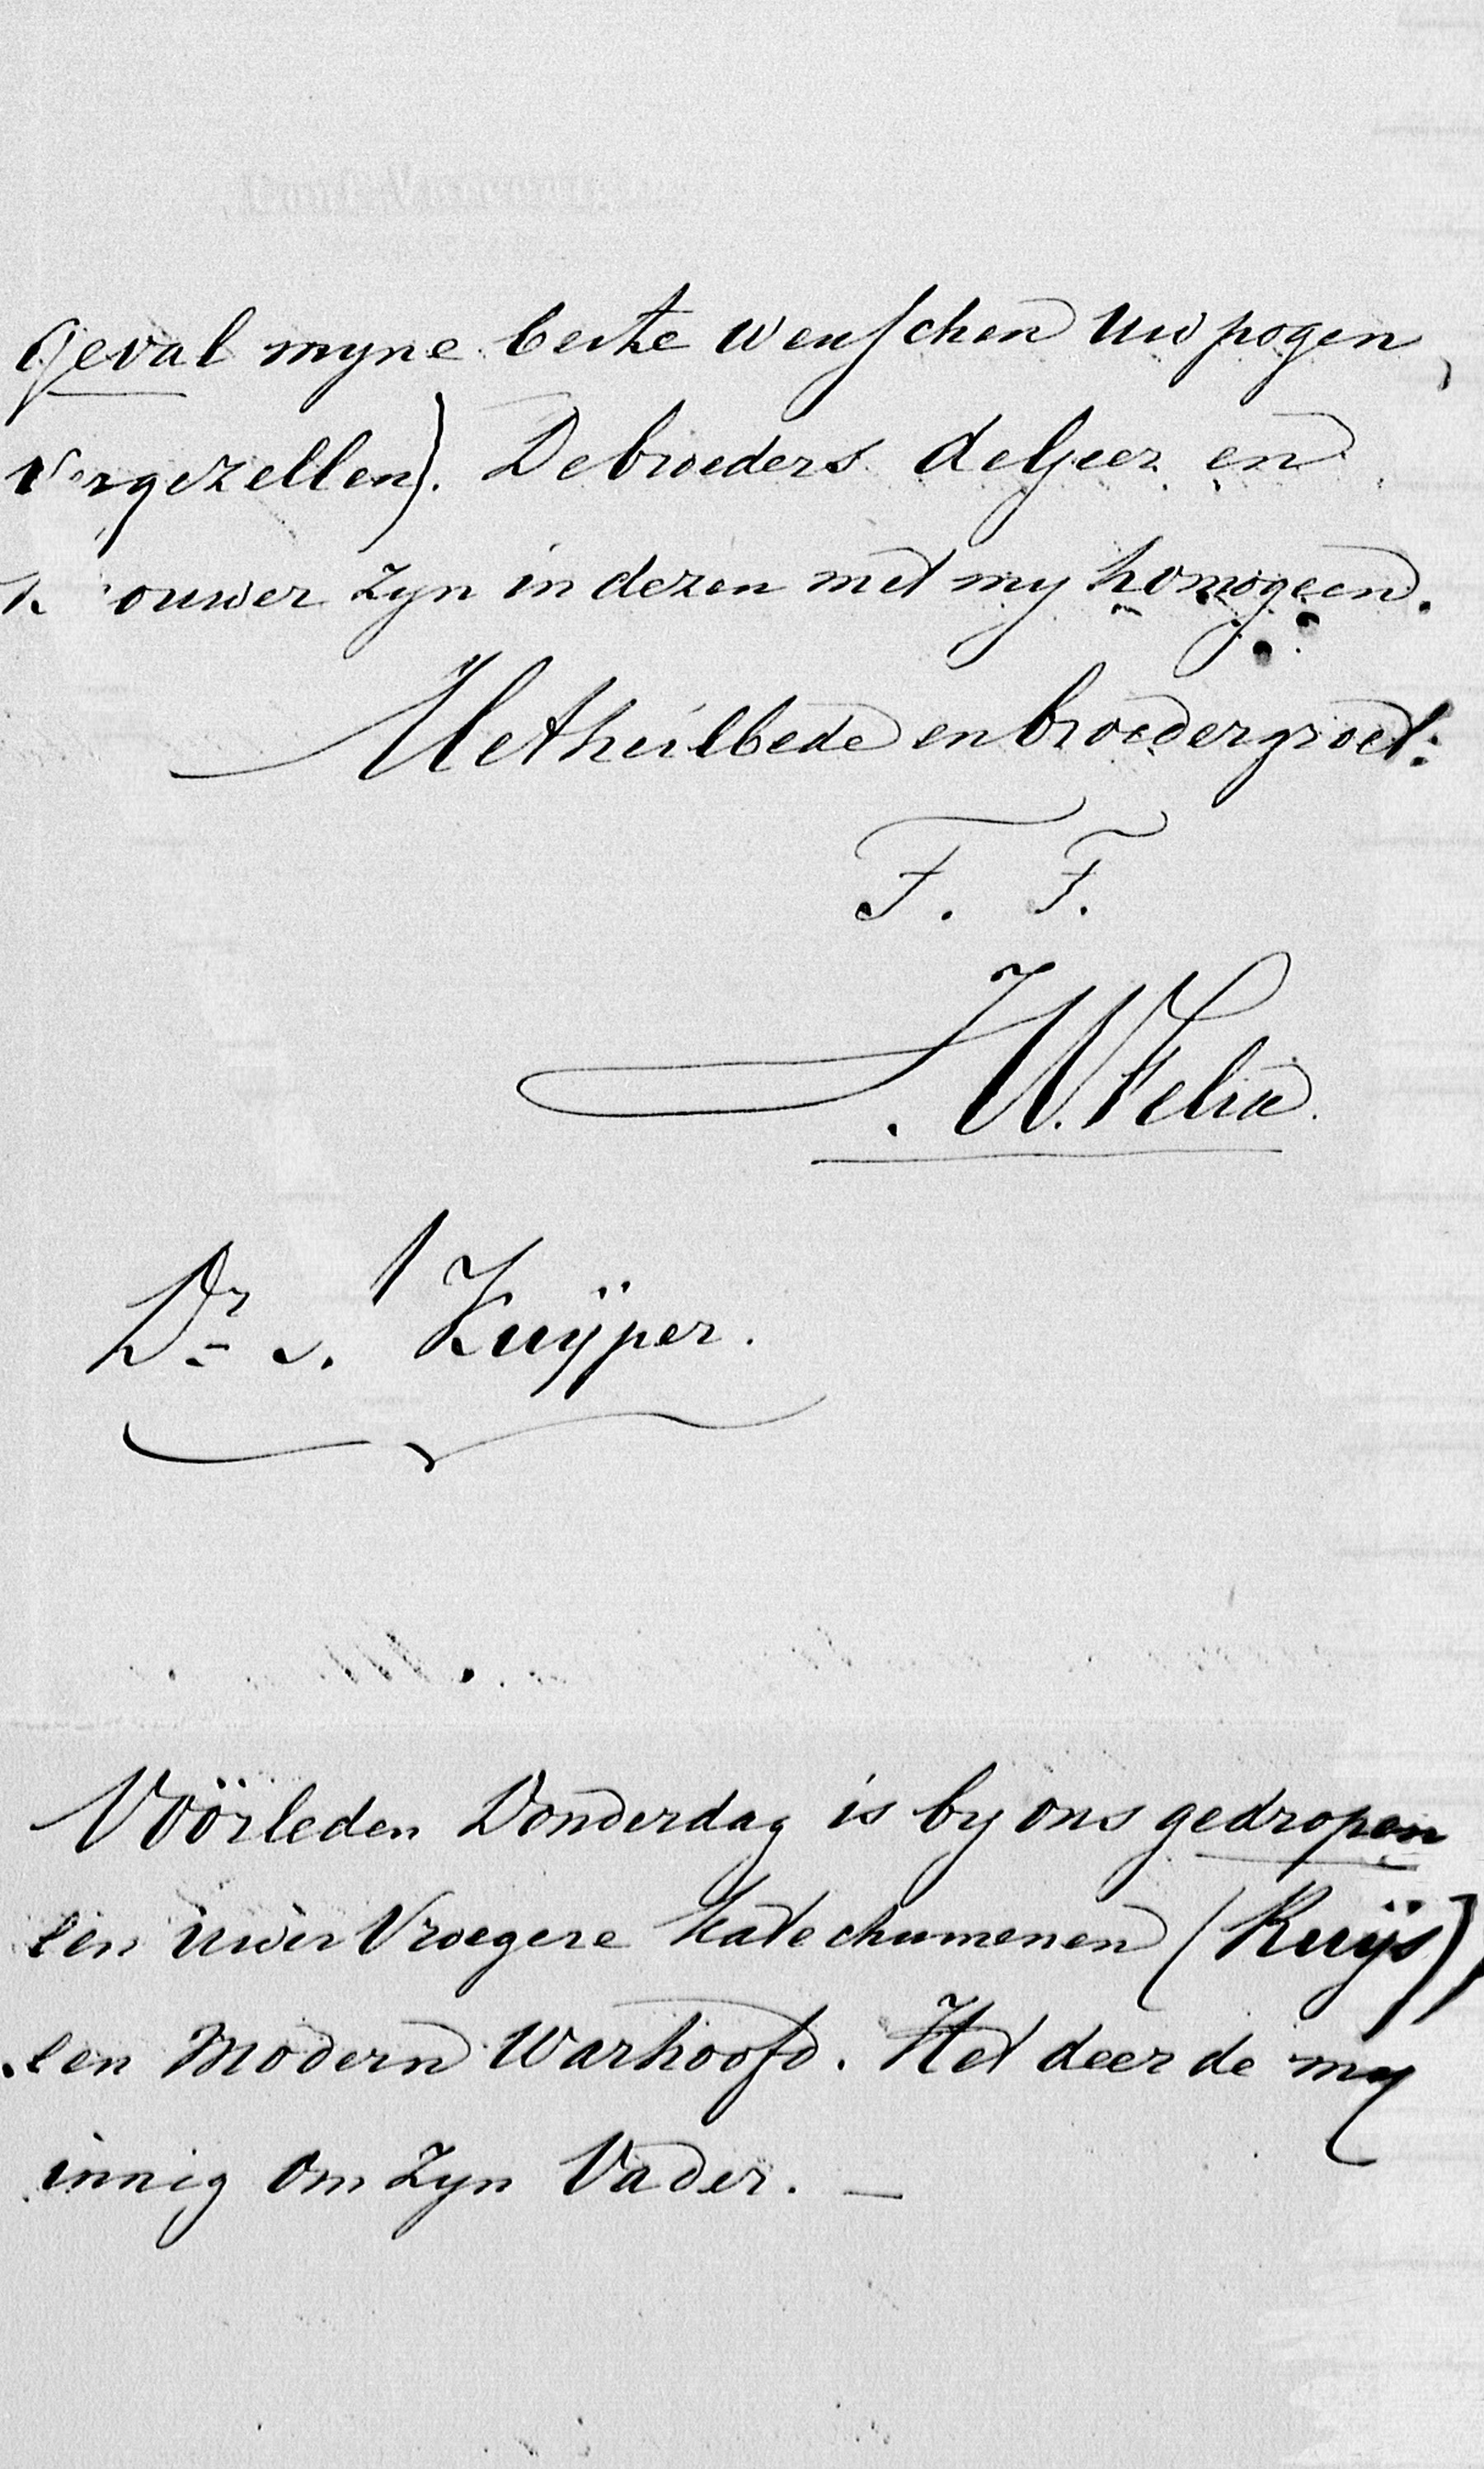 geval myne beste wenschen Uw pogen
vergezellen). De broeders de Geer en
ouwer zyn in dezen met my homogeen.
Met heilbede en broedergroet:
F. F.
J. W. Felix
Dr A. Kuÿper.
Vöörleden Donderdag is by ons gedropen
een uwer vroegere katechumenen (Kuÿs)
een Modern Warhoofd. Het deerde my
innig om zyn Vader. —